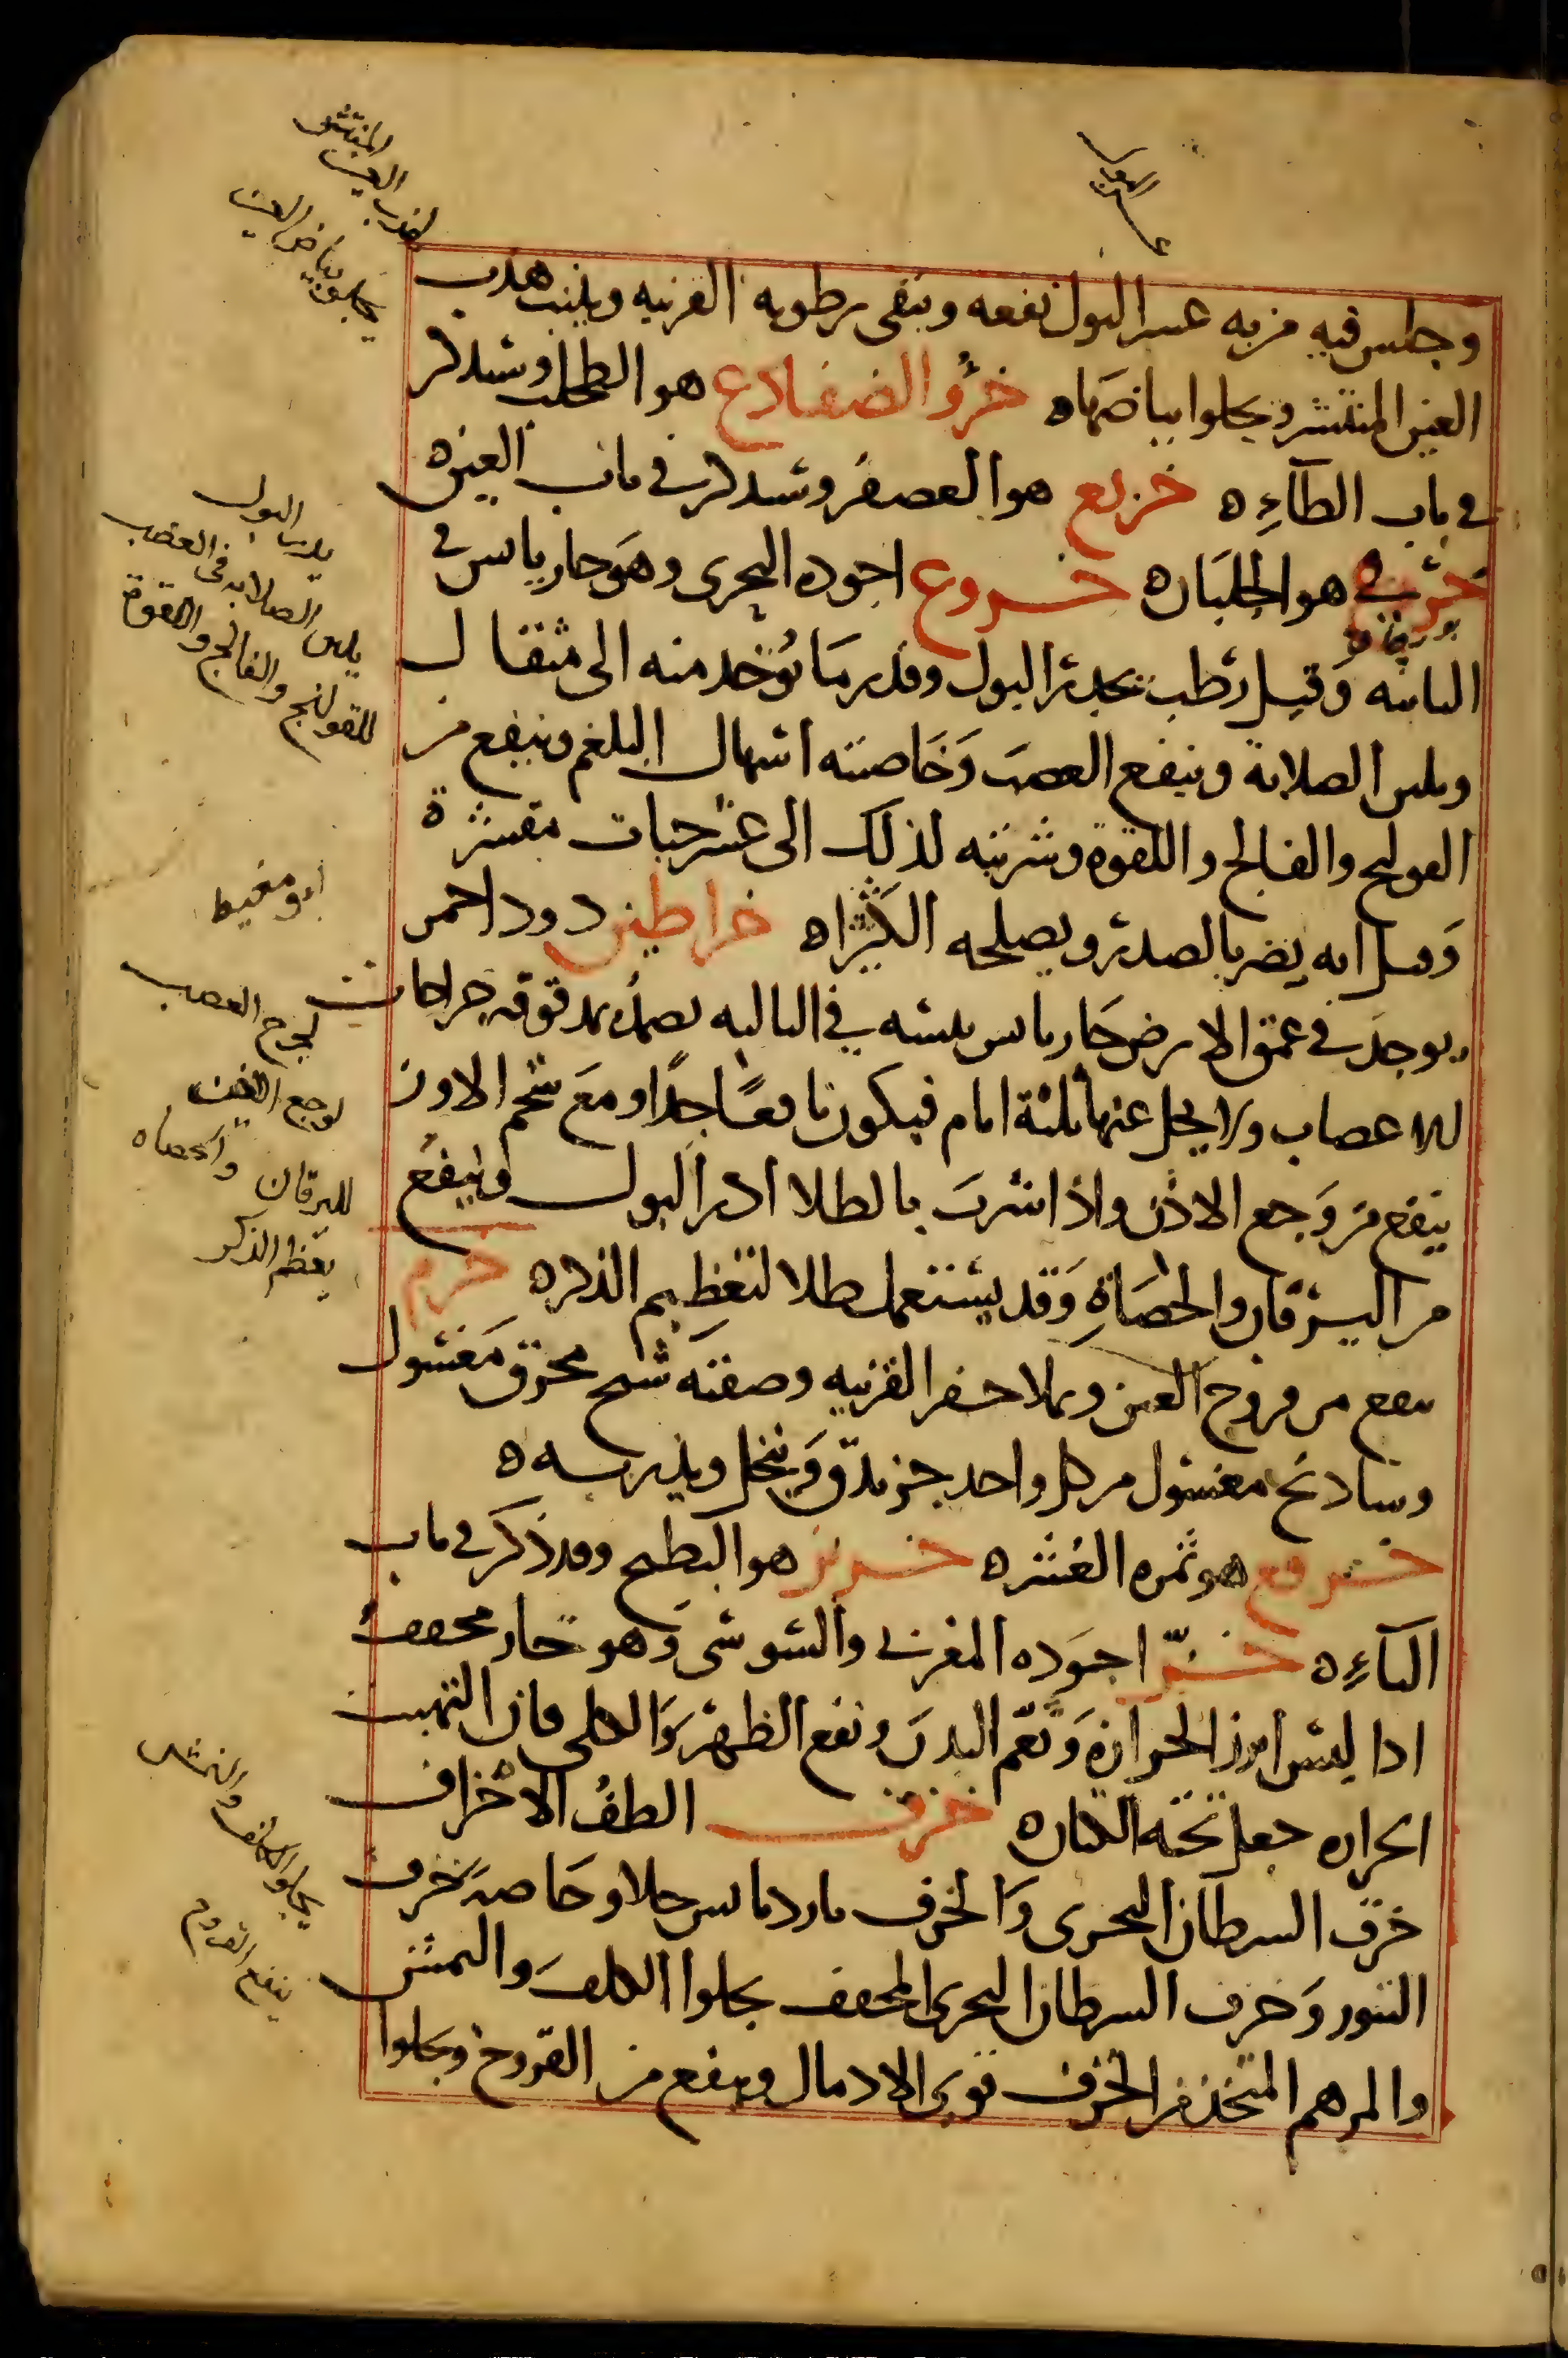 عسر البول
وجلس فيه من به عسر البول نفعه وينقى رطوبه القرنيه وينبت هدب
العين المنتثر ويجلوا بياضها ه خرؤ الضفادع هو الطحلب وسنذكر
في باب الطآء ه خريع هو العصفر وسنذكر في باب العين ه
هو الجلبان ه خروع اجوده البحرى وهو حار يابس في
الثانيه وقيل رطب يدر البول وقدر ما يوخذ منه الى مثقال
ويلين الصلابة وينفع العصب وخاصيته اسهال البلغم وينفع من
القولنج والفالج واللقوة وشربته لذلك الى عشر حبات مقشرة
وقيل انه يضر بالصدر ويصلحه الكثيرا ه خراطين دود احمر
يوجد في عمق الارض حار يابس في الثالثه يضمد بمدقوقه جراحات
الاعصاب ولا يحل عنها ثلثة ايام فيكون نافعًا جدًا ومع شحم الاوز
ينفع من وجع الاذن واذا شرب بالطلا ادر البول وينفع
من اليرقان والحصاة وقد يستعمل طلا لتعظيم الذكر ه خرم
ينفع من قروح العين ويملا حفر القرنيه وصفته شنج محرق مغسول
وشادنج مغسول من كل واحد جز يدق وينخل ويذر به ه
خرفع هو ثمره العشر ه خربز هو البطيخ وقد ذكر في باب
البآء ه خز اجوده المغربى والسوسى وهو حار مجفف
اذا لبس ابرز الحرارة ونعّم البدن ونفع الظهر والكلى فان التهبت
الحراره جعل تحته الكتان ه خزف الطف الاخزاف
خزف السرطان البحرى والخزف بارد يابس جلا وخاصه خزف
التنور وخزف السرطان البحرى المجفف يجلوا الكلف والنمش
والمرهم المتخذ من الخزف قوى الادمال وينفع من القروح ويجلوا
لهدب العين المنتثر
يجلو بياض العين
يدر البول
يلين الصلابه في العصب
للقولنج والفالج واللقوة
ابو مغيط
لجرح العصب
لوجع الاذن
لليرقان والحصاه
يعظم الذكر
يجلو الكلف والنمش
ينفع القروح